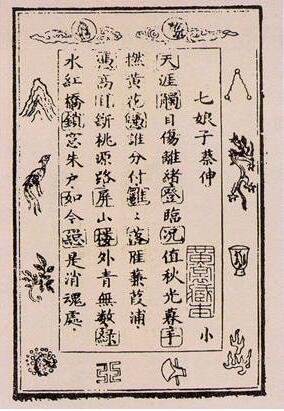 七娘子蔡伸
小
天涯觸目傷離緒登臨況值秋光暮手
撚黃花憑誰分付雝〻落雁蒹葭浦
憑高目斷桃源路屏山樓外青無數綠
水紅橋鎖窓朱户如今總是消魂處